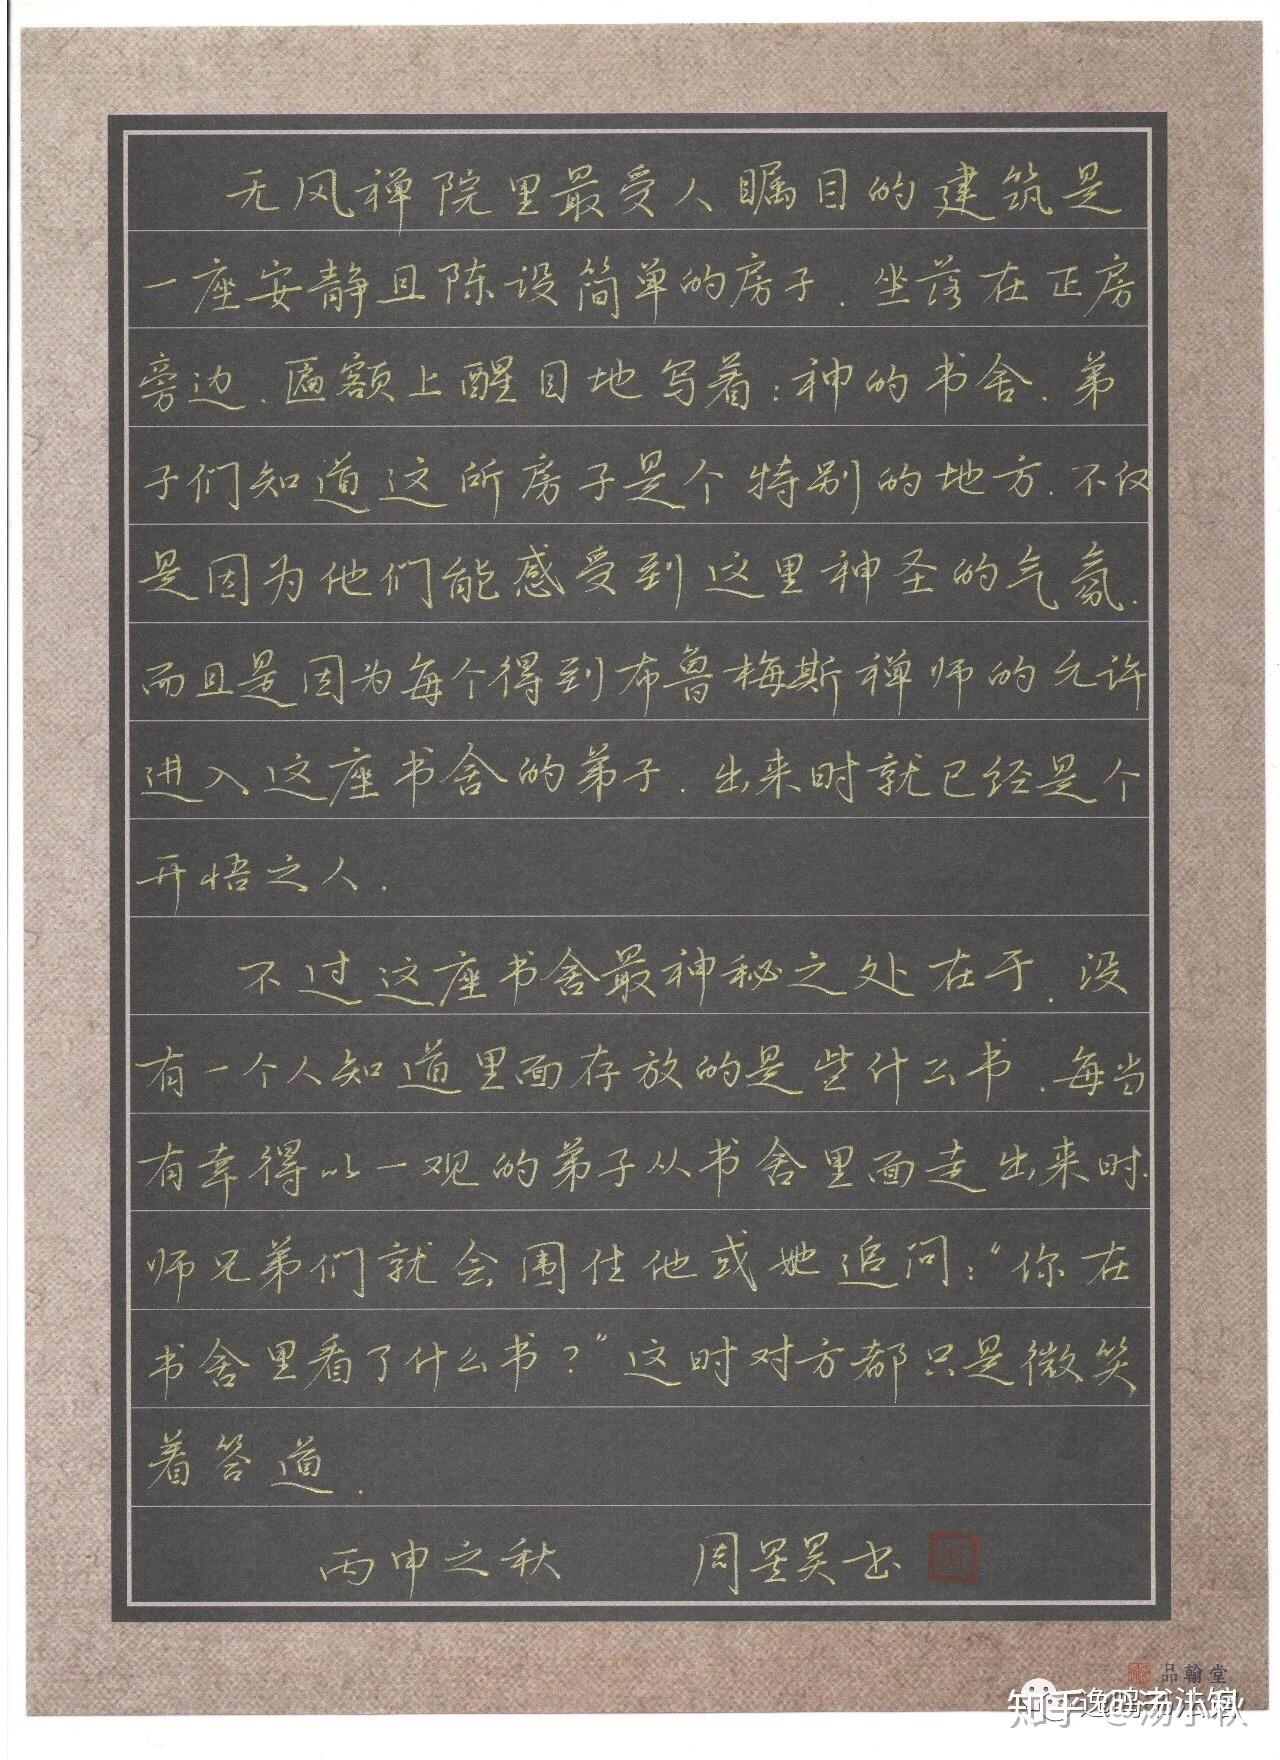 无风禅院里最受人瞩目的建筑是
一座安静且陈设简单的房子.坐落在正房
旁边.匾额上醒目地写着:神的书舍.弟
子们知道这所房子是个特别的地方.不仅
是因为他们能感受到这里神圣的气氛.
而且是因为每个得到布鲁梅斯禅师的允许
进入这座书舍的弟子.出来时就已经是个
开悟之人.
不过这座书舍最神秘之处在于.没
有一个人知道里面存放的是些什么书.每当
有幸得以一观的弟子从书舍里面走出来时.
师兄弟们就会围住他或她追问:“你在
书舍里看了什么书?”这时对方都只是微笑
着答道.
丙申之秋 周昱昊书
品翰堂